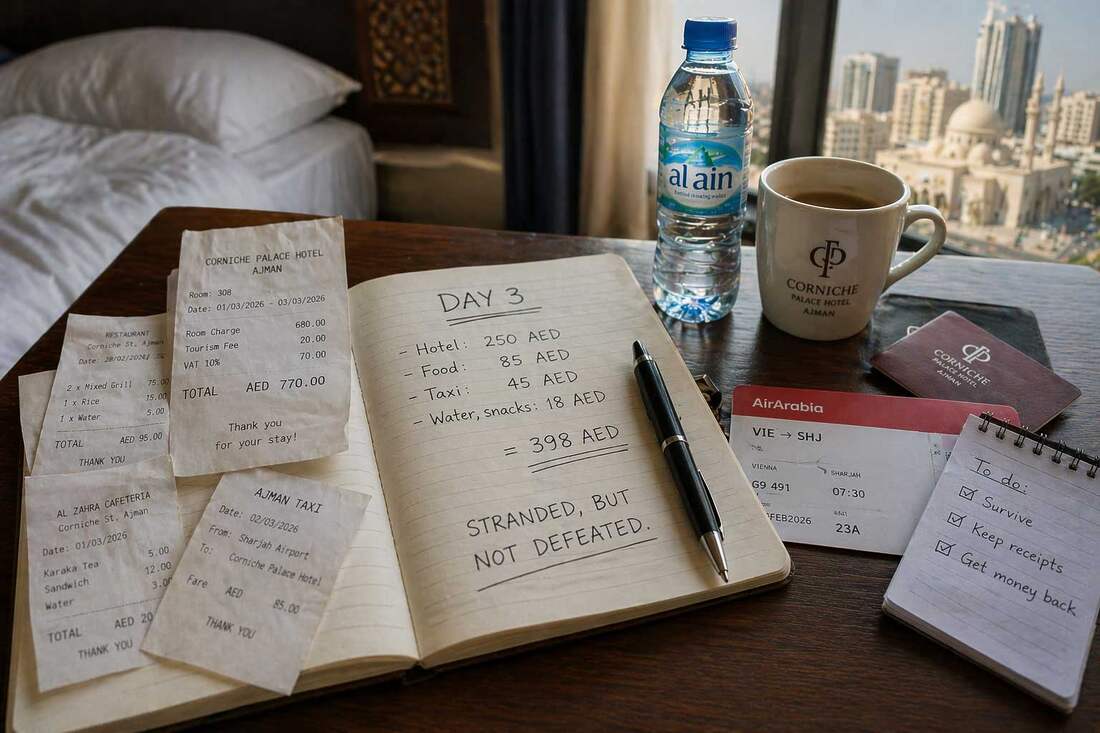 CORNICHE PALACE HOTEL
AJMAN
Room: 308
Date: 01/03/2026 - 03/03/2026
Room Charge 680.00
Tourism Fee 20.00
VAT 10% 70.00
TOTAL AED 770.00
Thank you
for your stay!
RESTAURANT
Corniche St. Ajman
Date: 28/02/2026
2 x Mixed Grill 75.00
1 x Rice 15.00
1 x Water 5.00
TOTAL AED 95.00
THANK YOU
AL ZAHRA CAFETERIA
Corniche St. Ajman
Date: 01/03/2026
Karaka Tea 5.00
Sandwich 12.00
Water 3.00
TOTAL AED 20
THANK YOU
AJMAN TAXI
Date: 02/03/2026
From: Sharjah Airport
To: Corniche Palace Hotel
Fare AED 85.00
THANK YOU
DAY 3
- Hotel: 250 AED
- Food: 85 AED
- Taxi: 45 AED
- Water, snacks: 18 AED
= 398 AED
STRANDED, BUT
NOT DEFEATED.
al ain
CORNICHE
PALACE HOTEL
AJMAN
CORNICHE
PALACE HOTEL
AJMAN
AirArabia
VIE → SHJ
VIENNA SHARJAH
G9 491 07:30
FEB2026
23A
To do:
☑ Survive
☑ Keep receipts
☑ Get money back